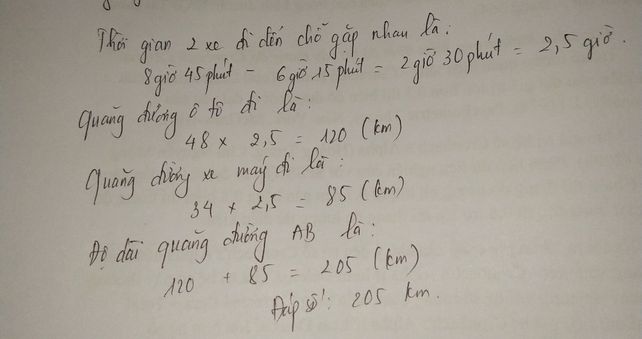 Thời gian 2 xe đi đến chỗ gặp nhau là:
8giờ 45phút - 6giờ 15phút = 2giờ 30phút = 2,5 giờ.
Quãng đường ô tô đi là:
48 x 2,5 = 120 (km)
Quãng đường xe máy đi là:
34 x 2,5 = 85 (km)
Độ dài quãng đường AB là:
120 + 85 = 205 (km)
Đáp số: 205 km.